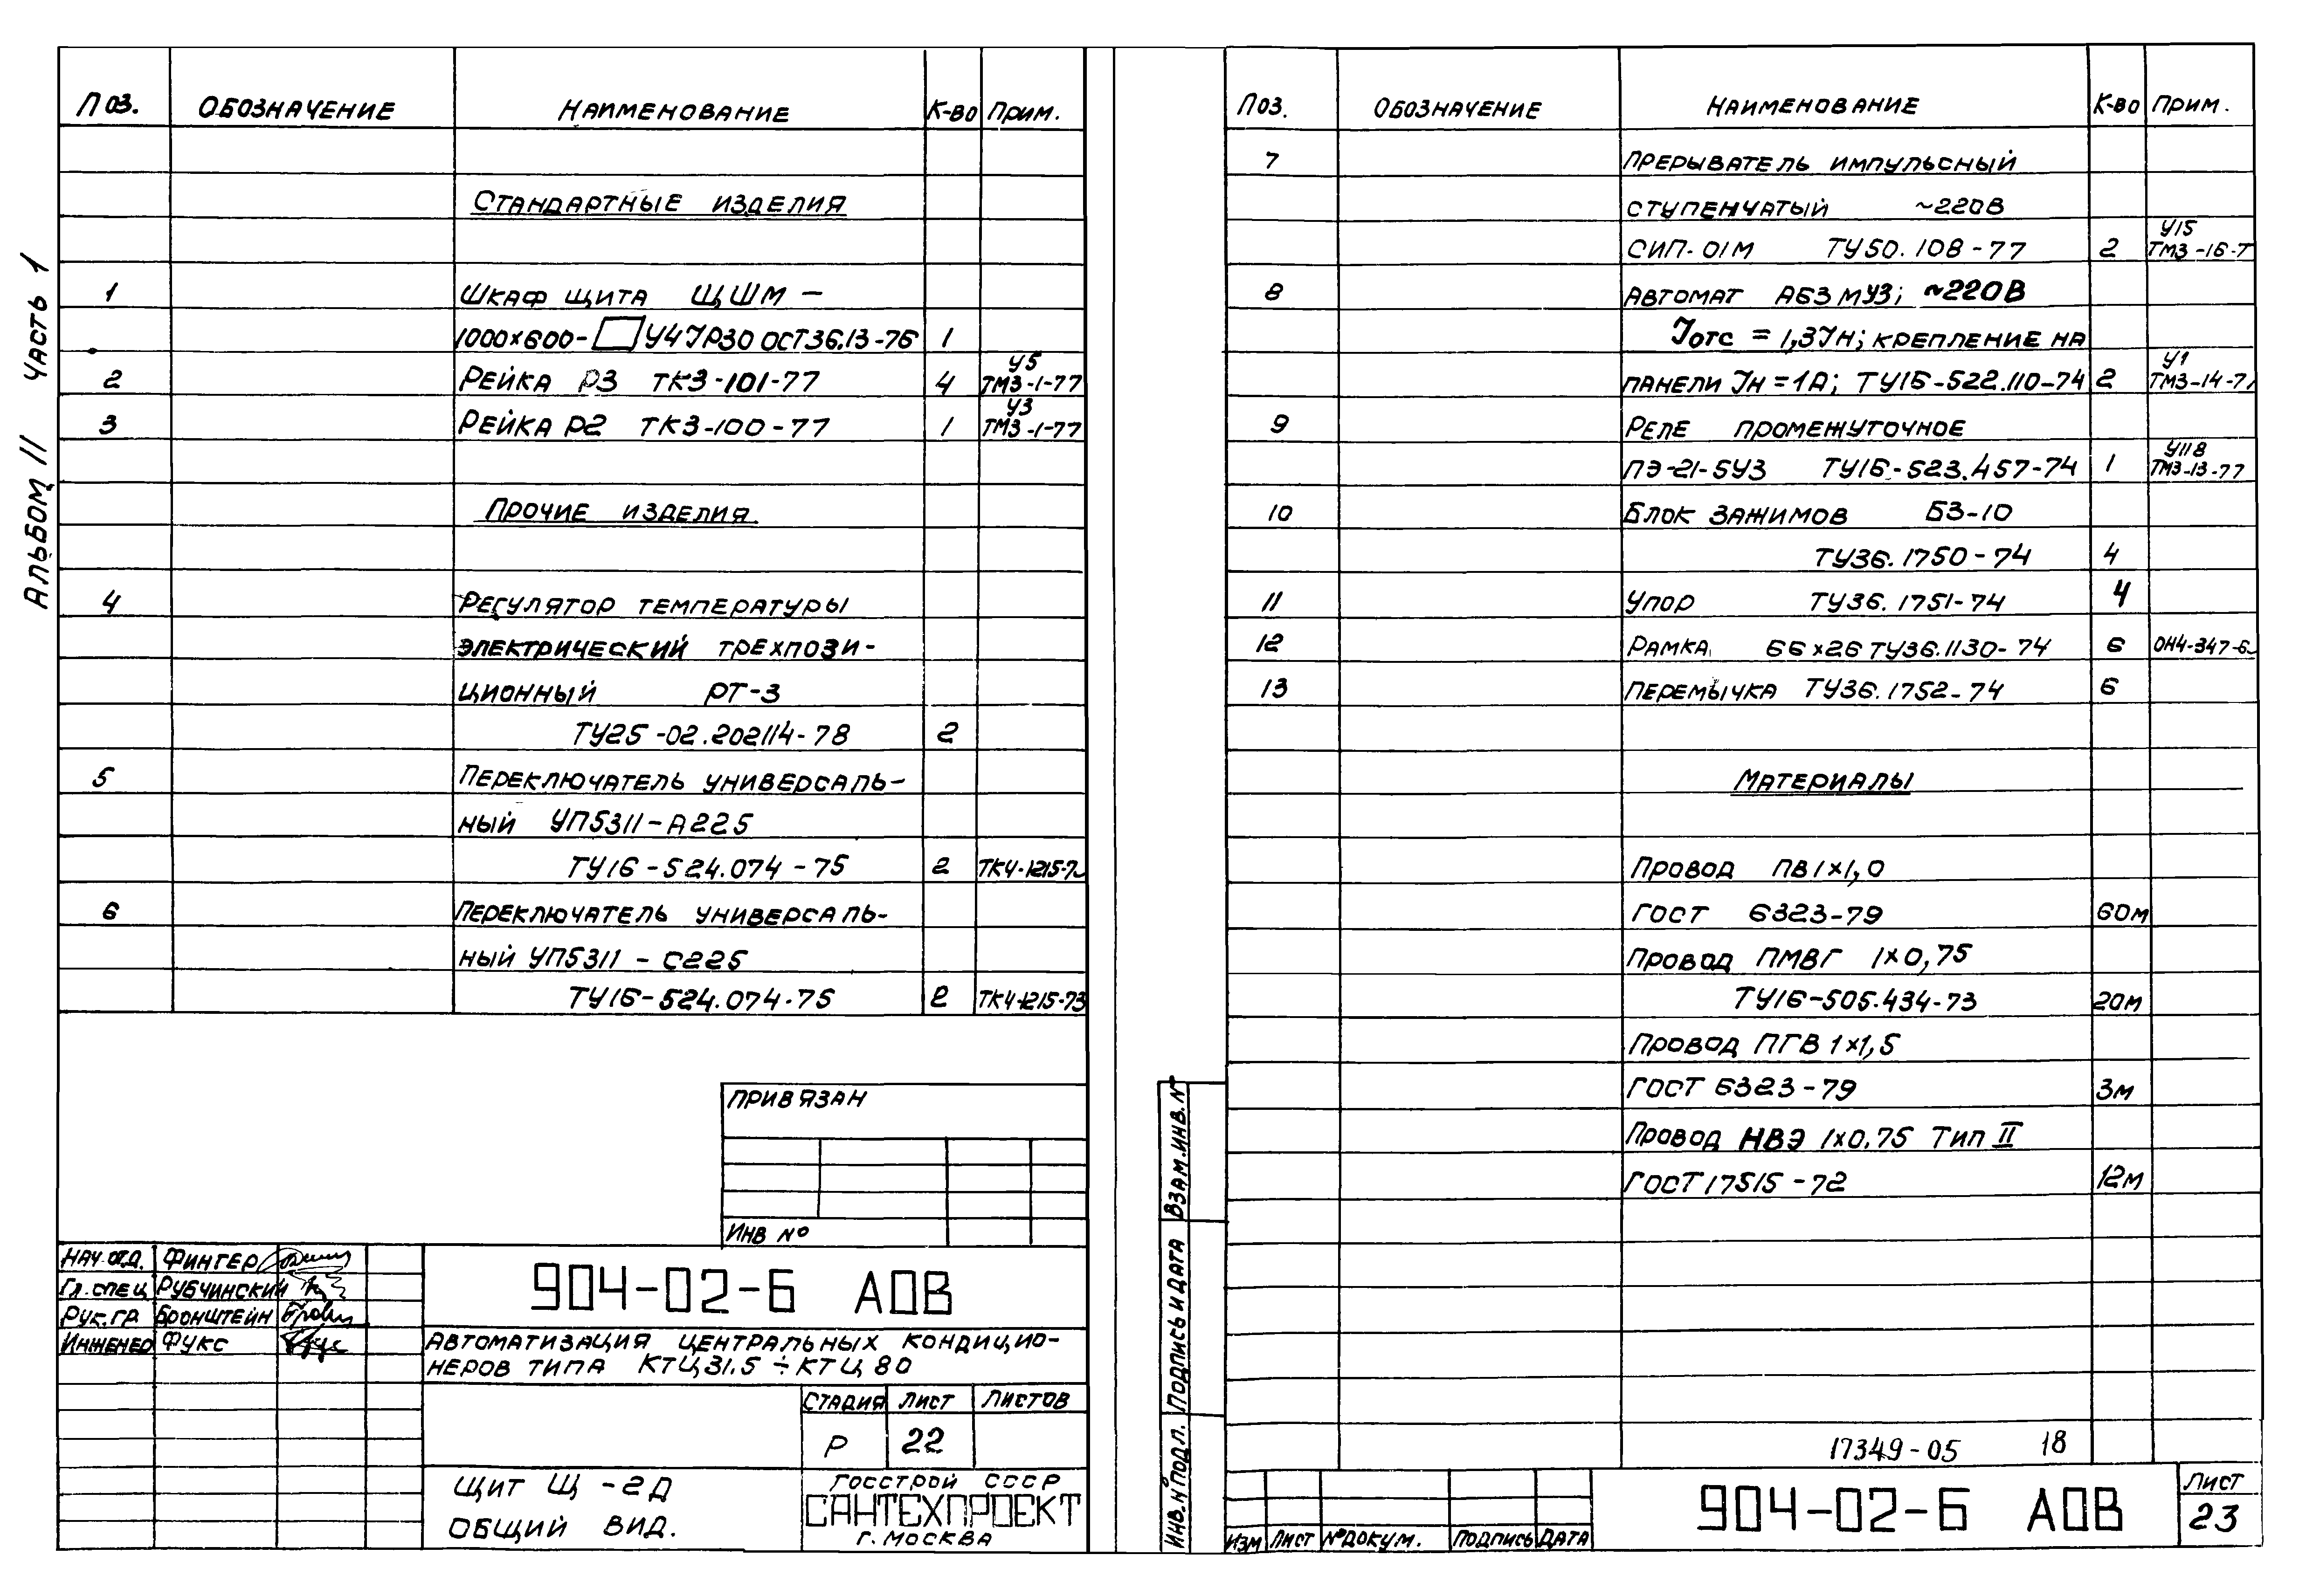 Альбом II часть 1
Поз. Обозначение Наименование К-во Прим.
Стандартные изделия
1 Шкаф щита ЩШМ –
1000×600- У4 IР30 ОСТ36.13-76 1
У5
2 Рейка Р3 ТК3-101-77 4 ТМ3-1-77
У3
3 Рейка Р2 ТК3-100-77 1 ТМ3-1-77
Прочие изделия
4 Регулятор температуры
электрический трехпози-
ционный РТ-3
ТУ25-02.202114-78 2
5 Переключатель универсаль-
ный УП5311-А225
ТУ16-524.074-75 2 ТК4-1215-7
6 Переключатель универсаль-
ный УП5311-С225
ТУ16-524.074-75 2 ТК4-1215-73
Привязан
Инв №
Нач. отд. Фингер
Гл. спец Рубчинский
Рук. гр Бронштейн
Инженер Фукс
904-02-6 АОВ
Автоматизация центральных кондицио-
неров типа КТЦ 31.5 ÷ КТЦ 80
Стадия Лист Листов
Р 22
Щит Щ-2Д
Общий вид.
Госстрой СССР
САНТЕХПРОЕКТ
г. Москва
Поз. Обозначение Наименование К-во Прим.
7 Прерыватель импульсный
ступенчатый ~220В
У15
СИП-01М ТУ50.108-77 2 ТМ3-16-7
8 Автомат А63МУ3; ~220В
Iотс = 1,3Iн; крепление на
У1
панели Iн=1А; ТУ16-522.110-74 2 ТМ3-14-7
9 Реле промежуточное
У118
ПЭ-21-5У3 ТУ16-523.457-74 1 ТМ3-13-77
10 Блок зажимов БЗ-10
ТУ36.1750-74 4
11 Упор ТУ36.1751-74 4
12 Рамка 66×26 ТУ36.1130-74 6 ОН4-347-6
13 Перемычка ТУ36.1752-74 6
Материалы
Провод ПВ 1×1,0
ГОСТ 6323-79 60м
Провод ПМВГ 1×0,75
ТУ16-505.434-73 20м
Провод ПГВ 1×1,5
ГОСТ 6323-79 3м
Провод НВЭ 1×0.75 Тип II
ГОСТ 17515-72 12м
17349-05 18
Взам. инв. №
Подпись и дата
Инв. № подл.
Изм Лист № докум. Подпись Дата
904-02-6 АОВ
Лист
23